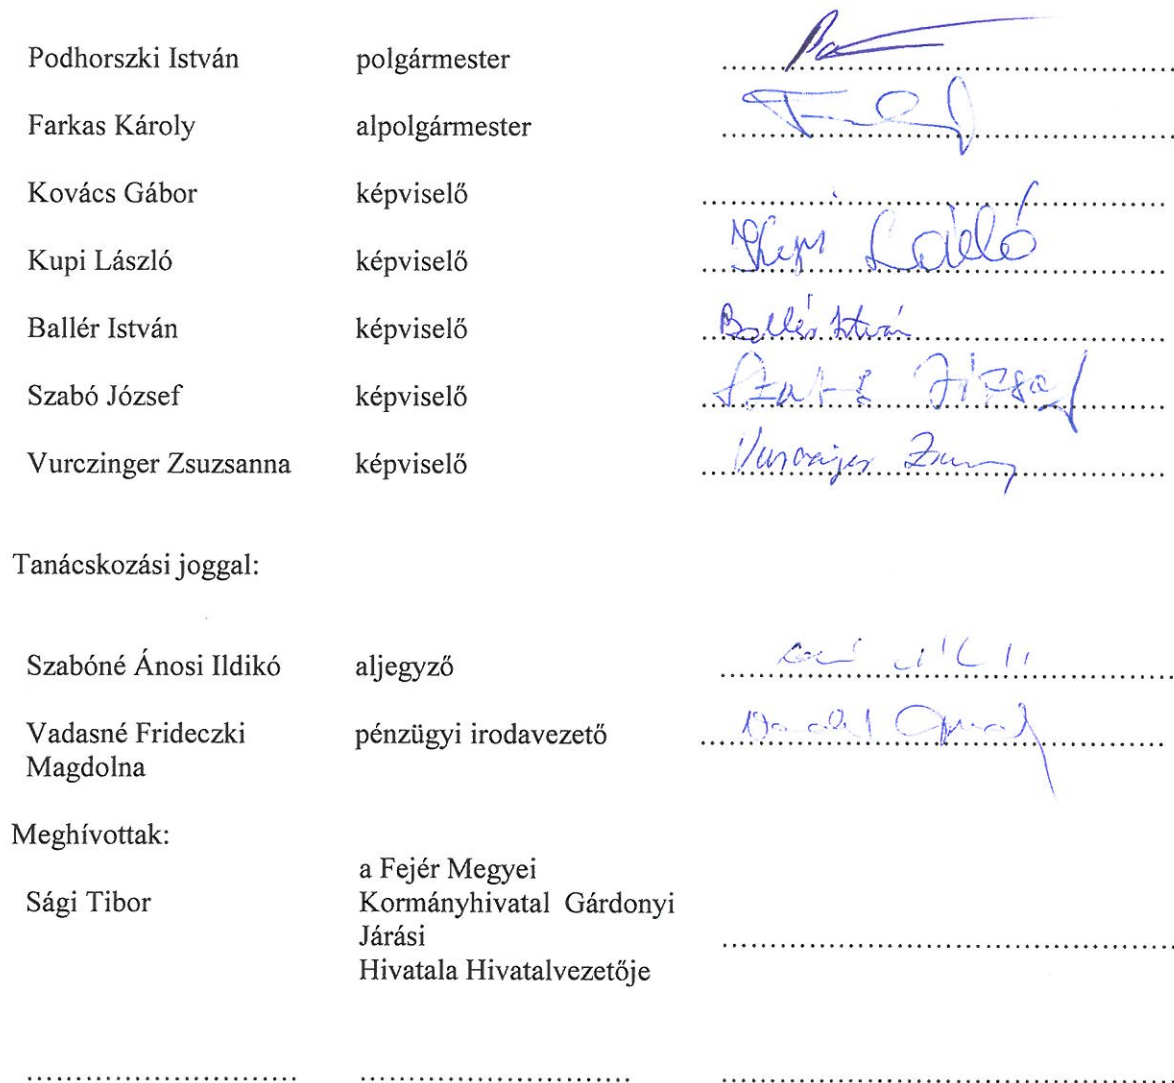 Podhorszki István polgármester ........................................
Farkas Károly alpolgármester ........................................
Kovács Gábor képviselő ........................................
Kupi László képviselő ........................................
Ballér István képviselő Ballér István
Szabó József képviselő Szabó József
Vurczinger Zsuzsanna képviselő ........................................
Tanácskozási joggal:
Szabóné Ánosi Ildikó aljegyző ........................................
Vadasné Frideczki pénzügyi irodavezető ........................................
Magdolna
Meghívottak:
a Fejér Megyei
Sági Tibor Kormányhivatal Gárdonyi
Járási ........................................
Hivatala Hivatalvezetője
........................................ ........................................ ........................................